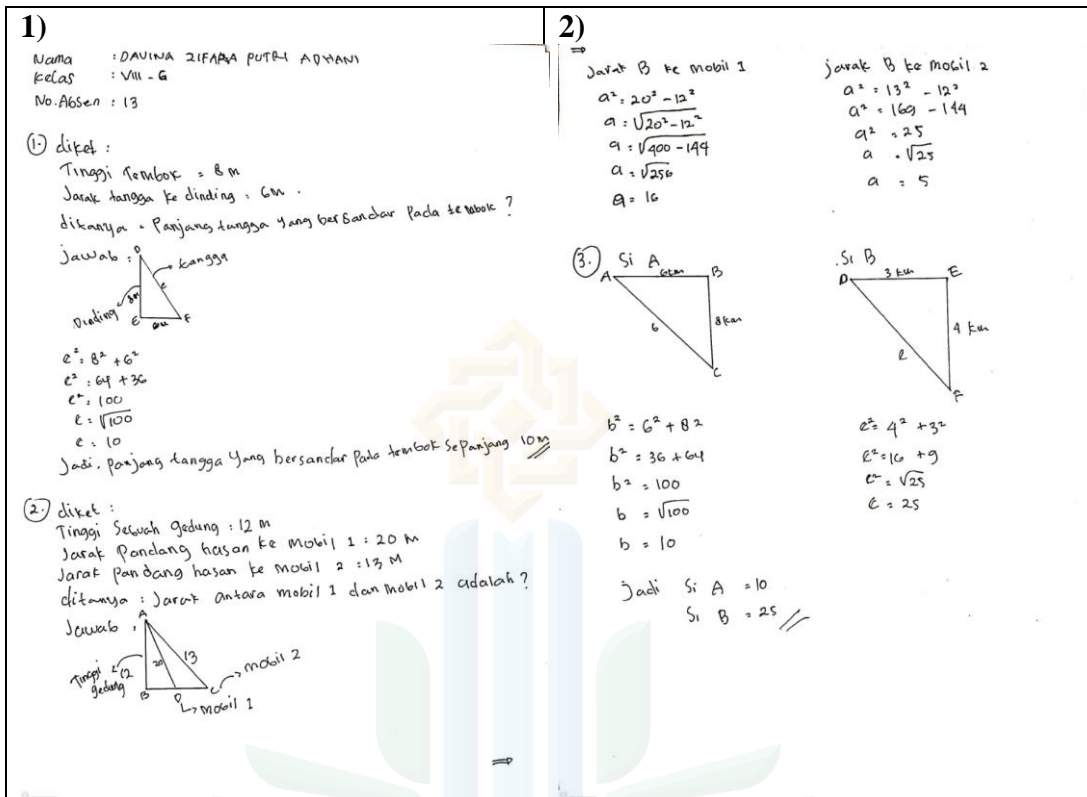 1)
Nama : DAVINA ZIFARA PUTRI ADHANI
Kelas : VIII - G
No.Absen : 13
1. diket :
Tinggi Tembok = 8 m
Jarak tangga ke dinding : 6m .
ditanya = Panjang tangga yang bersandar Pada tembok ?
jawab :
D
tangga
e
8m
Dinding
E
6m
F
e² = 8² + 6²
e² : 64 + 36
e² : 100
e = √100
e : 10
Jadi, panjang tangga yang bersandar Pada tembok sepanjang 10m //
2. diket :
Tinggi Sebuah gedung : 12 m
Jarak Pandang hasan ke mobil 1 : 20 m
Jarak pandang hasan ke mobil 2 : 13 M
ditanya : Jarak antara mobil 1 dan mobil 2 adalah ?
Jawab :
A
Tinggi gedung
12
20
13
mobil 2
B
D
C
mobil 1
⇒
2)
⇒
Jarak B ke mobil 1
a² = 20² - 12²
a = √20² - 12²
a = √400 - 144
a = √256
a = 16
jarak B ke mobil 2
a² = 13² - 12²
a² = 169 - 144
a² = 25
a = √25
a = 5
3. Si A
A
6km
B
6
8 km
C
b² = 6² + 8²
b² = 36 + 64
b² = 100
b = √100
b = 10
Si B
D
3 km
E
e
4 km
F
e² = 4² + 3²
e² = 16 + 9
e² = √25
e = 25
Jadi Si A = 10
Si B = 25 //